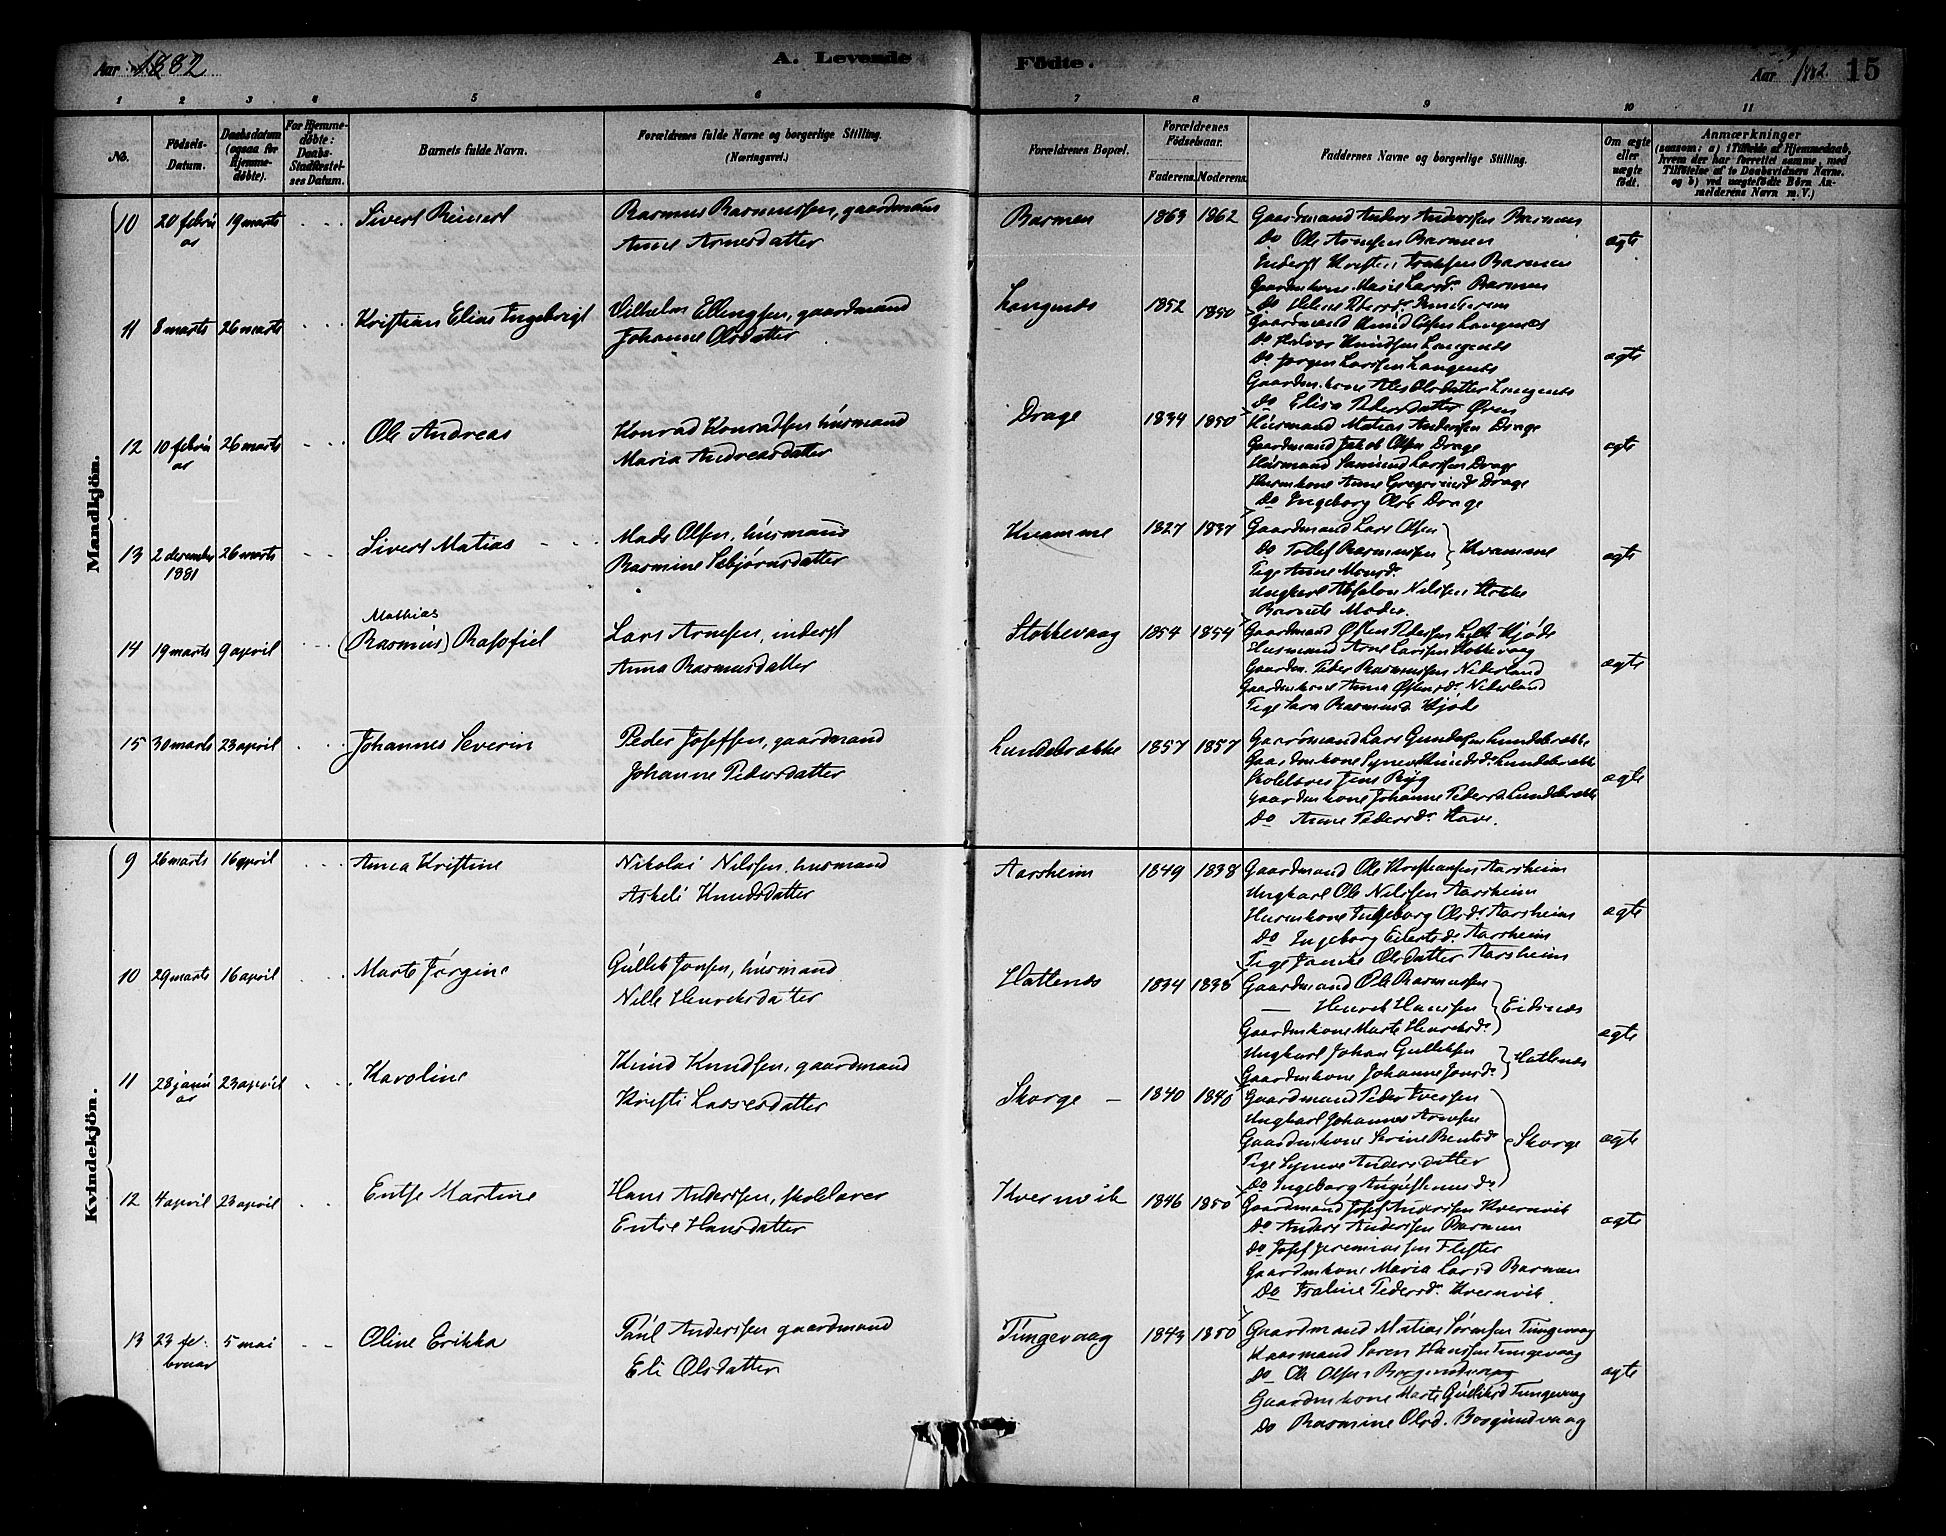 Aar 1882 A. Levende Födte. Aar 1882. 15
1 2 3 4 5 6 7 8 9 10 11
No. Födsels-Datum. Daabsdatum (ogsaa for Hjemme-døbte). For Hjemme-døbte: Daabs-Stadfæstel-ses Datum. Barnets fulde Navn. Forældrenes fulde Navne og borgerlige Stilling. (Næringsvei.) Forældrenes Bopæl. Forældrenes Födselsaar. Faderens. Moderens. Faddernes Navne og borgerlige Stilling. Om ægte eller uægte född. Anmærkninger (saasom: a) i Tilfælde af Hjemmedaab, hvem der har forrettet samme, med Tilføielse af to Daabsvidners Navne, og b) ved uægtefödte Börn Anmelderens Navn m. V.)
Mandkjön.
10 20 febru 19 marts Sivert Reinert Rasmus Rasmussen, gaardmand Barmen 1863 1862 Gaardmand Anders Anderssen Barmen
ar Anne Arnesdatter Do Ole Arnesen Barmen ægte
Inderst Kristen Barmen
Gaardmkone Marie Larsd. Barmen
Do Helene
11 8 marts 26 marts Kristian Elias Ingebrigt Vilhelm Ellingsen, gaardmand Langenæs 1852 1850 Gaardmand Knud Olsen Langenæs
Johanne Olsdatter Do Halvor Knudsen Langenæs
Do Jørgen Larssen Langenæs ægte
Gaardm.kone Ales Olsdatter Langenæs
Do Elisa Pedersdatter Øren
12 10 febru 26 marts Ole Andreas Konrad Konradsen husmand Drage 1834 1850 Husmand Matias Andersen Drage
ar Maria Andreasdatter Gaardmand Jakob Olsen Drage ægte
Husmand Samund Larssen Drage
Husmkone Anne Gregoriusd. Drage
Do Ingeborg Olsd. Drage
13 2 december 26 marts Sivert Matias Mads Olsen, husmand Kvamme 1827 1837 Gaardmand Lars Olsen
1881 Rasmine Sebjørnsdatter Do Tollef Rasmussen } Kvamme ægte
Tige Anne Monsd.
Ungkarl Absalon Nilssen Stokke
Barnets Moder.
Mathias
14 19 marts 9 april (Rasmus) Rasofiel Lars Arnesen, inderst Stokkevaag 1854 1854 Gaardmand Østen Pedersen Hjøde
Anna Rasmusdatter Husmand Arne Larssen Stokkevaag
Gaardm. Peder Rasmussen Nederland ægte
Gaardmkone Anna Østensd. Nederland
Tige Sara Rasmusd. Hjøde
15 30 marts 23 april Johannes Severin Peder Josefsen, gaardmand Lundebrække 1857 1857 Gaardmand Lars Lundebrække
Johanne Pedersdatter Gaardmkone Synev Lundebrække
Skolelærer Jens Ryg ægte
Gaardmkone Johanne Pedersd. Lundebrække
Do Anne Pedersd. Have.
Kvindekjön.
9 26 marts 16 april Anna Kristine Nikolai Nilssen, husmand Aarsheim 1849 1838 Gaardmand Ole Kristiansen Aarsheim
Askeli Knudsdatter Ungkarl Ole Nilssen Aarsheim
Husmkone Ingeborg Olsd. Aarsheim ægte
Do Ingeborg Eilertsd. Aarsheim
Tige Janike Olsdatter Aarsheim
10 29 marts 16 april Marte Jørgine Gullik Jonsen, husmand Hatlenæs 1834 1838 Gaardmand Ole Rasmussen
Nille Henriksdatter — Henrik Hanssen } Eidsnæs
Gaardmkone Marte Henriksd. ægte
Ungkarl Johan Gulliksen
Gaardmkone Johanne Jonsd. } Hatlenæs
11 28 janu 23 april Karoline Knud Knudsen, gaardmand Skorge 1840 1840 Gaardmand Peder Iversen
ar Kristi Larsesdatter Ungkarl Johannes Arnesen
Gaardmkone Serine Bentsd. } Skorge ægte
Tige Synneve Andersdatter
Do Ingeborg Augustinusd.
12 4 april 23 april Entse Martine Hans Anderssen, skolelærer Kvernevik 1846 1850 Gaardmand Josef Anderssen Kvernvik
Entse Hansdatter Do Anders Anderssen Barmen ægte
Do Josef Jeremiassen Flister
Gaardmkone Maria Larsd. Barmen
Do Pedersd. Kvernvik
13 23 fe- 5 mai Oline Erikka Paul Anderssen gaardmand Tungevaag 1843 1850 Gaardmand Matias Sørensen Tungevaag
bruar Eli Olsdatter Kaarmand Søren Hanssen Tungevaag
Do Ole Olsen Borgundvaag ægte
Gaardmkone Marte Gulliksd. Tungevaag
Do Rasmine Olsd. Borgundvaag